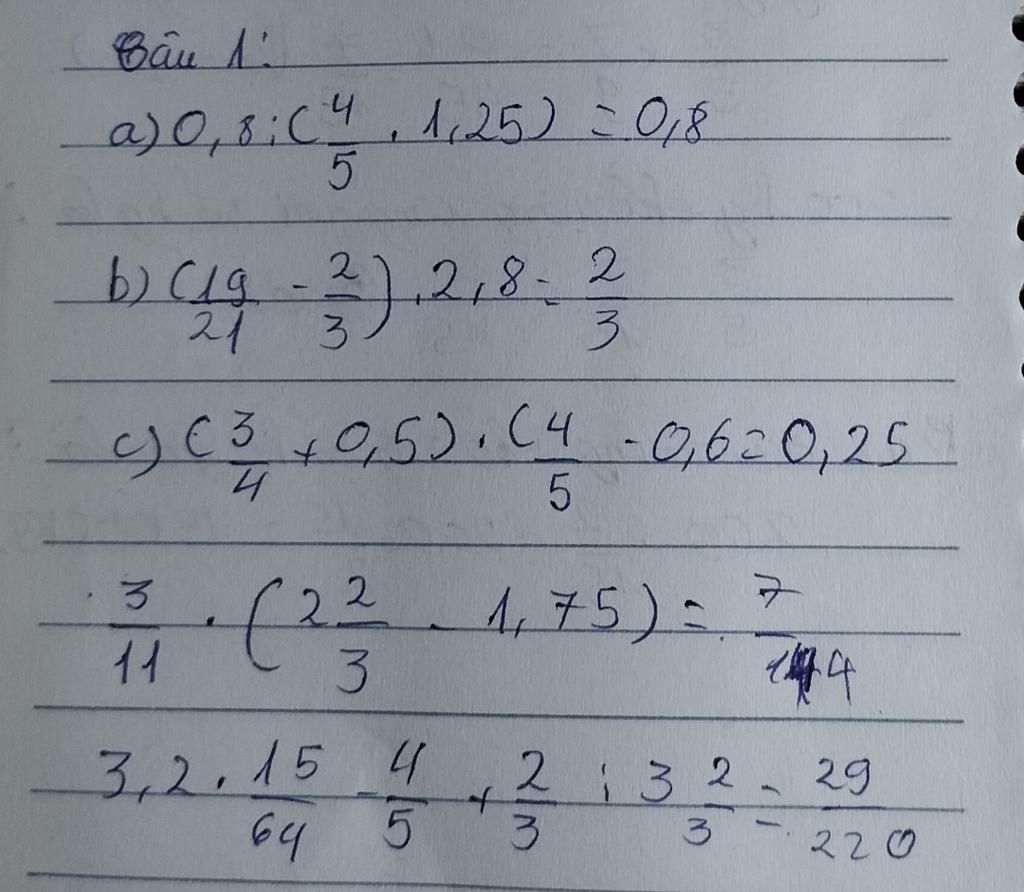 Câu 1:
a) 0,8 : (4/5 . 1,25) = 0,8
b) (19/21 - 2/3) . 2,8 = 2/3
c) (3/4 + 0,5) . (4/5 - 0,6 = 0,25
3/11 . (2 2/3 - 1,75) = 7/4
3,2 . 15/64 - 4/5 + 2/3 : 3 2/3 = 29/220